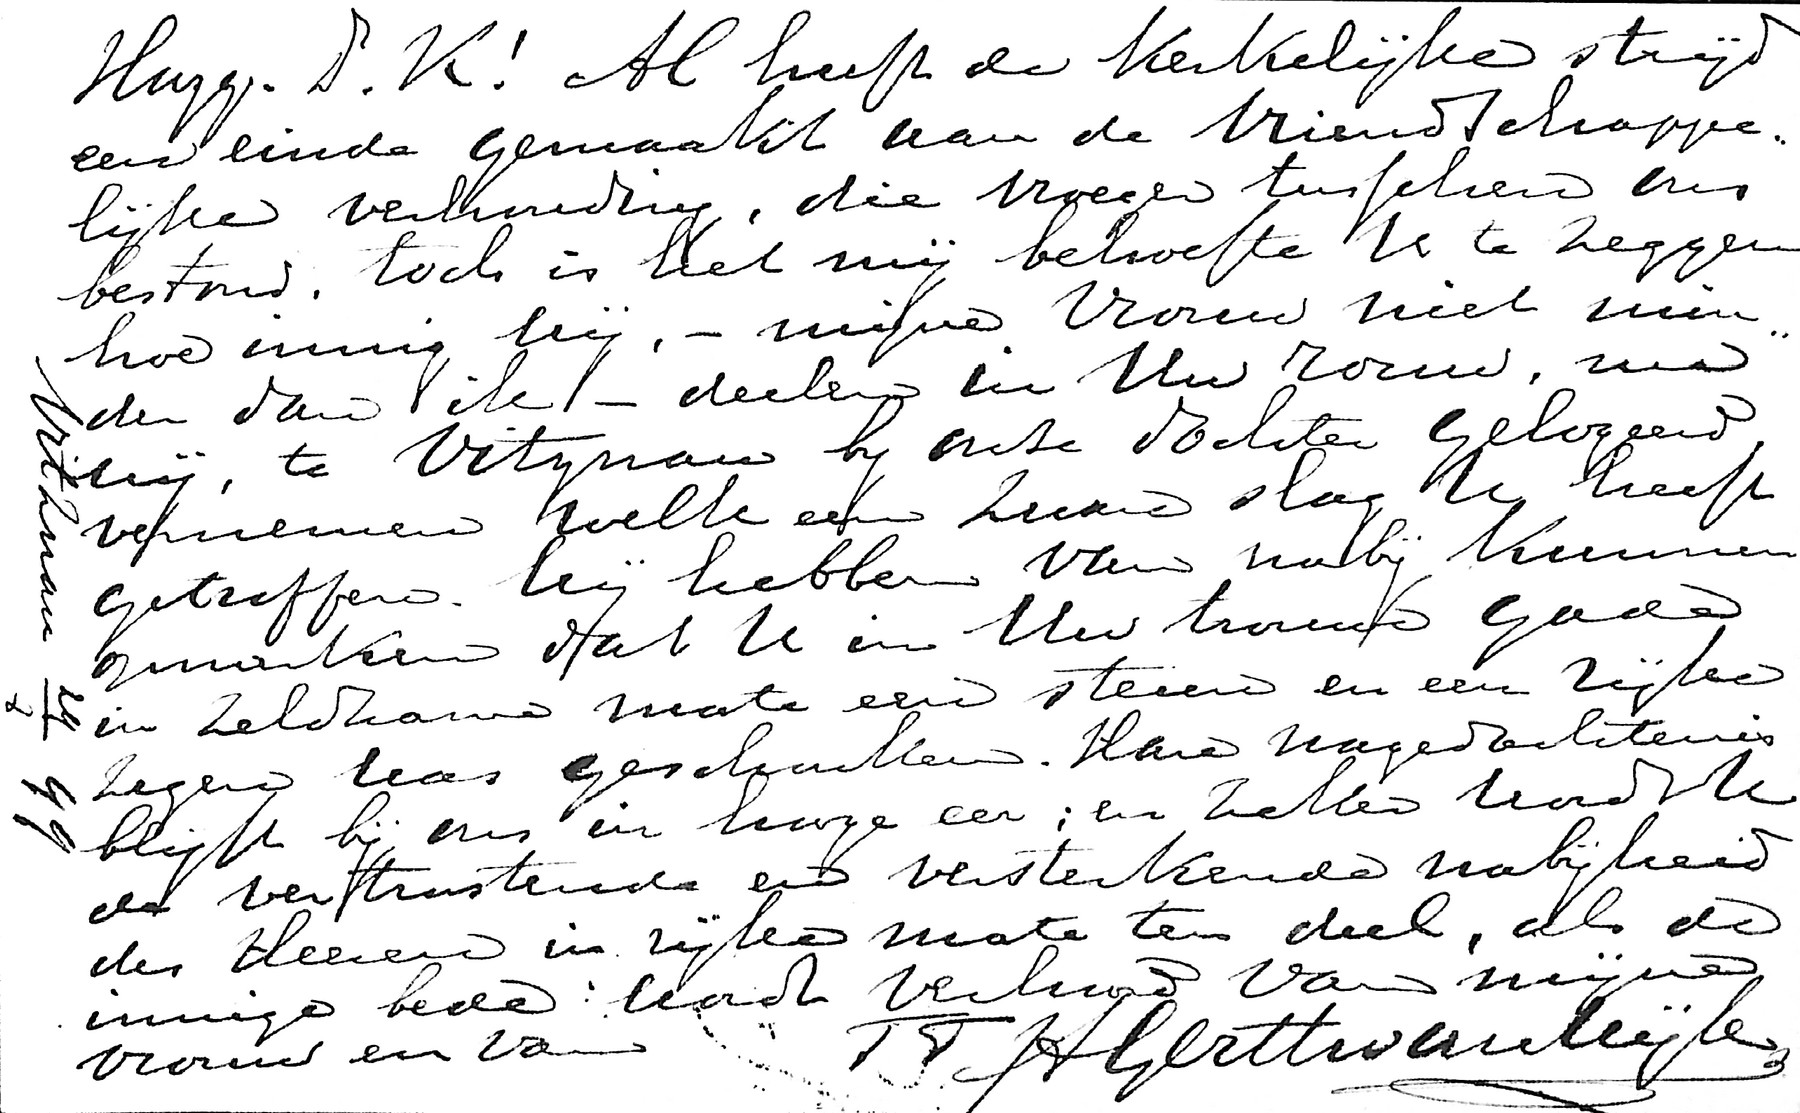 Hugg. D. K! Al heeft de Kerkelijke strijd
een einde gemaakt aan de vriendschappe-
lijke verhouding, die vroeger tusschen ons
bestond, toch is het mij behoefte U te zeggen
hoe innig wij, - mijne Vrouw niet min-
der dan ik - deelen in Uw rouw, nu
wij, te Vitznau bij onze dochter gelogeerd,
vernemen welk een zware slag U heeft
getroffen. Wij hebben van nabij kunnen
opmerken dat U in Uw trouwe gade
in zeldzame mate een steun en een rijke
zegen was geschonken. Hare nagedachtenis
blijft bij ons in hooge eer; en zeker wordt U
de vertroostende en versterkende nabijheid
des Heeren in rijke mate ten deel, als de
innige bede wordt verhoord van mijne
vrouw en van TT HGerthvanWijk
Vitznau 99